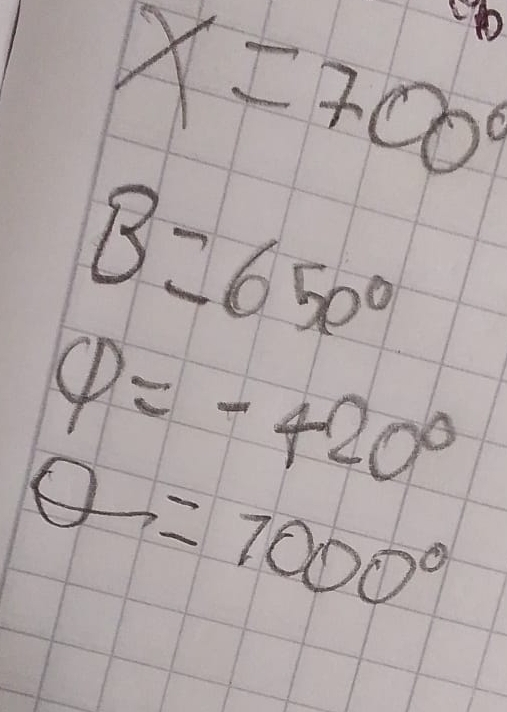 X = 700°
B = 650°
φ = - 420°
θ = 1000°